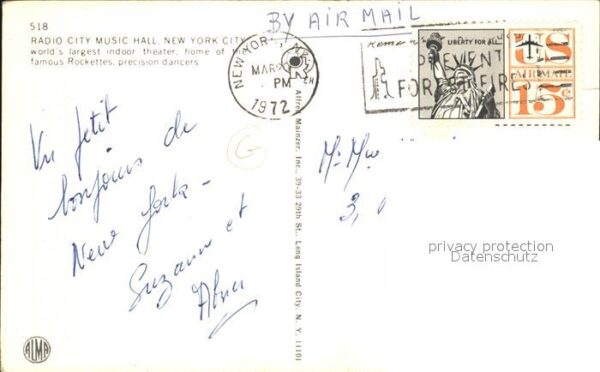 518
BY AIR MAIL
RADIO CITY MUSIC HALL, NEW YORK CITY
world's largest indoor theater, home of
famous Rockettes, precision dancers
NEW YORK, N.Y.
MAR
PM
1972
LIBERTY FOR ALL
US
AIR MAIL
15c
PREVENT
FOREST FIRES
Un petit
bonjour de
New York -
Suzanne et
Alfred Mainzer, Inc., 39-33 29th St., Long Island City, N. Y. 11101
G
3,
privacy protection
Datenschutz
ALMA